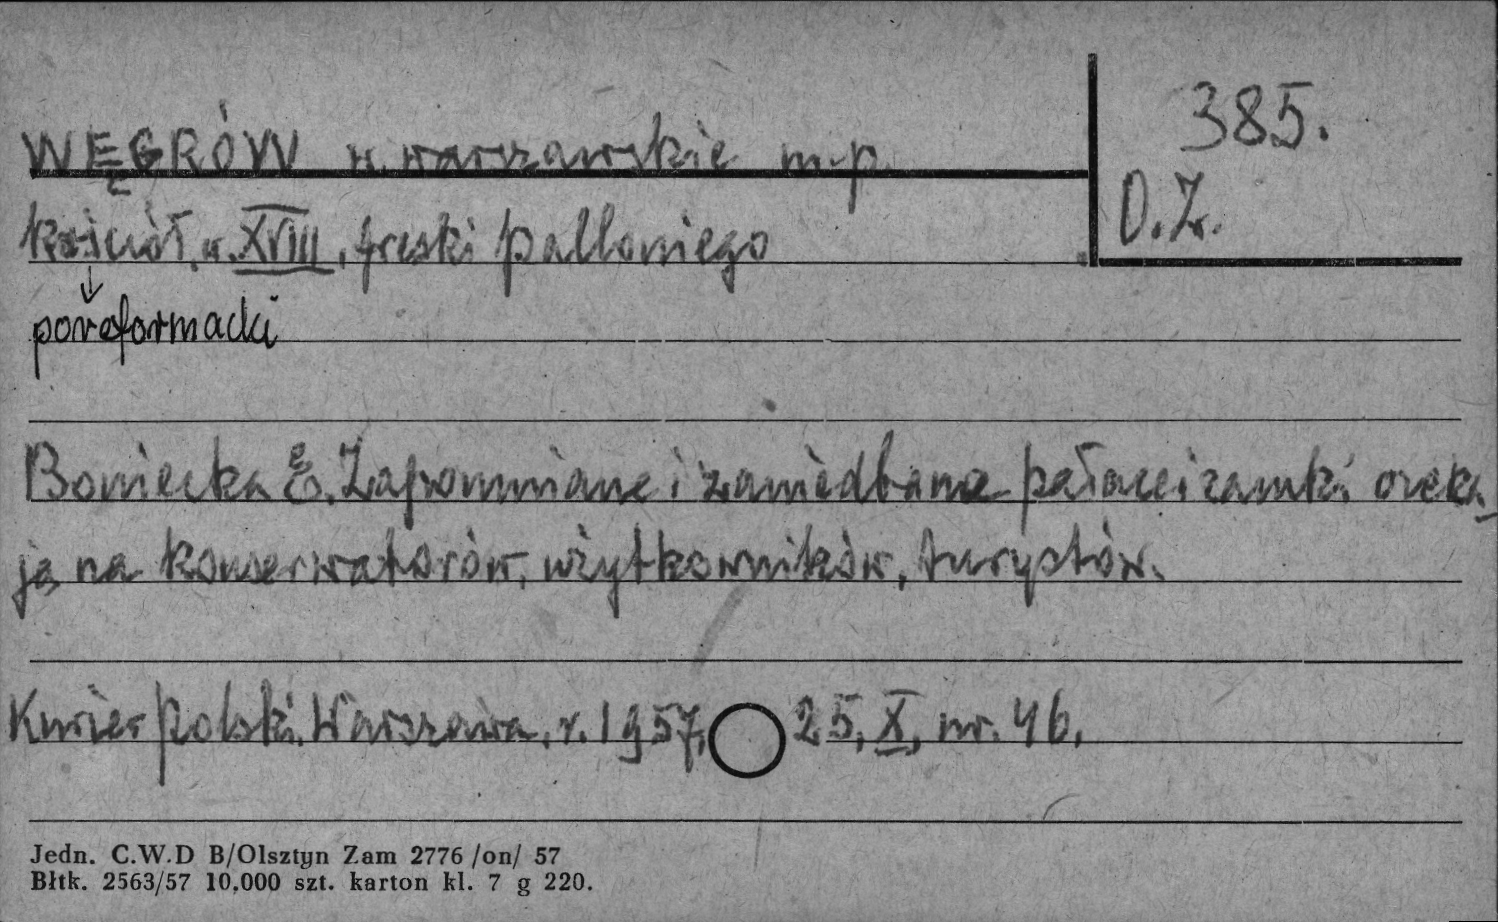 WĘGRÓW w. warszawskie m-p
385.
D.Z.
kościół w. XVIII, freski Palloniego
poreformacki
Boniecka E. Zapomniane i zaniedbane pałace i zamki czeka-
ją na konserwatorów, użytkowników, turystów.
Kurier Polski. Warszawa, r. 1957, 25, X, nr. 46.
Jedn. C.W.D B/Olsztyn Zam 2776 /on/ 57
Błtk. 2563/57 10.000 szt. karton kl. 7 g 220.